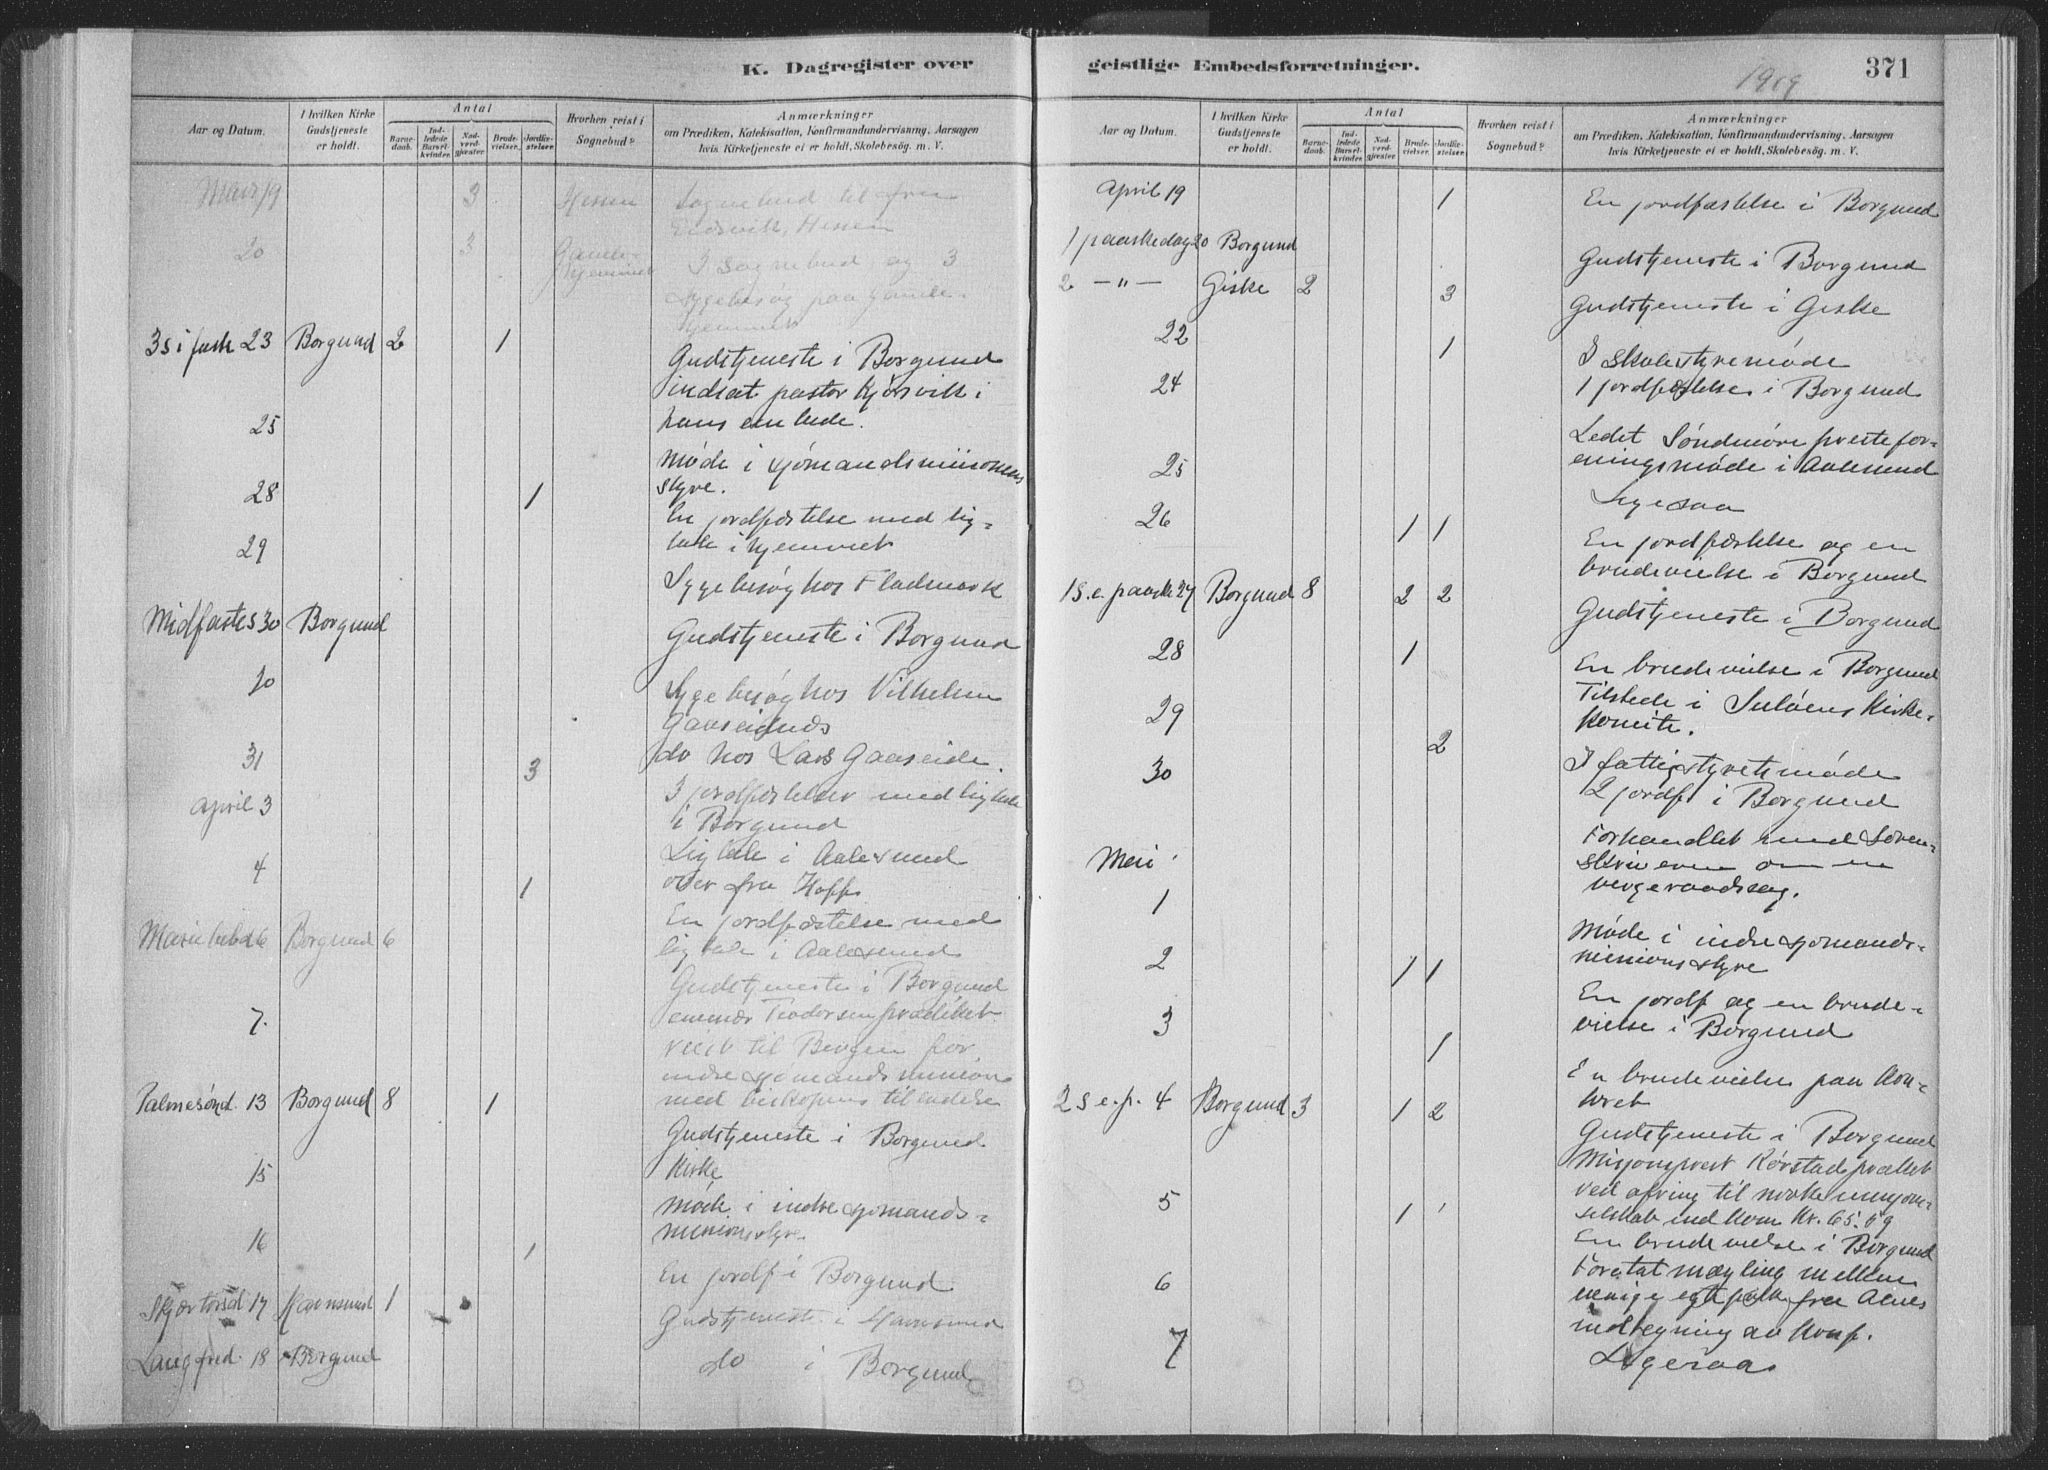 K. Dagregister over
Aar og Datum.
I hvilken Kirke Gudstjeneste er holdt.
Antal
Barnedaab.
Indledede Barselkvinder.
Nadverdgjæster.
Brudevielser.
Jordfæstelser.
Hvorhen reist i Sognebud?
Anmærkninger
om Prædiken, Katekisation, Konfirmandundervisning, Aarsagen
hvis Kirketjeneste ei er holdt, Skolebesøg. m. V.
Mars 19 3 Hessen Sognebud til fru
Eidsvik, Hessen
20 3 Gamle-
hjemmet I sognebud og 3
sygebesøg paa gamle-
hjemmet
3 s i faste 23 Borgund 2 1 Gudstjeneste i Borgund
indsat pastor Kjørsvik i
hans embede.
25 Møde i sjømandsmissionens
styre.
28 1 En jordfæstelse med lig-
tale i hjemmet
29 Sygebesøg hos Fladmark
Midfastes 30 Borgund Gudstjeneste i Borgund
30 Sygebesøg hos Vilhelm
Gaaseidnes
31 3 do hos Lars Gaaseide.
April 3 3 jordfæstelser med ligtale
i Borgund
Ligtale i Aalesund
4 1 over fru Hoff
En jordfæstelse med
Marie bebd 6 Borgund 6 ligtale i Aalesund
Gudstjeneste i Borgund
7. reist til Bergen for
indre sjømandsmission
med biskopens tilladelse
Palmesønd. 13 Borgund 8 1 Gudstjeneste i Borgund
Kirke
15 Møde i indre sjømands-
missions styre.
16 1 En jordf i Borgund
Skjærtorsd 17 Havnsund 1 Gudstjeneste i Havnsund
Langfred. 18 Borgund do i Borgund
geistlige Embedsforretninger.
1919
371
Aar og Datum.
I hvilken Kirke Gudstjeneste er holdt.
Antal
Barnedaab.
Indledede Barselkvinder.
Nadverdgjæster.
Brudevielser.
Jordfæstelser.
Hvorhen reist i Sognebud?
Anmærkninger
om Prædiken, Katekisation, Konfirmandundervisning, Aarsagen
hvis Kirketjeneste ei er holdt, Skolebesøg. m. V.
April 19 1 En jordfæstelse i Borgund
1 paaskedag 20 Borgund Gudstjeneste i Borgund
2 — " — Giske 2 3 Gudstjeneste i Giske
22 1 I skolestyremøde
24 1 jordfæstelse i Borgund
Ledet Søndmøre prestefor-
25 eningsmøde i Aalesund
Lygesaa
26 1 1 En jordfæstelse og en
brudevielse i Borgund
1 s. e. paaske 27 Borgund 8 2 2 Gudstjeneste i Borgund
28 1 En brudevielse i Borgund
29 Tilstede i Suløens Kirke-
komite.
2 I fattigstyretsmøde
30 2 jordf i Borgund
Forhandlet med Soren-
Mai skriveren om en
vergeraadssag.
1 Møde i indre sjomands-
missions styre
2 1 1 En jordf og en brude-
3 vielse i Borgund
1 En brudevielse paa kon-
toret
2 s. e. p. 4 Borgund 3 1 2 Gudstjeneste i Borgund
Misjonsprest Rørstad præket
ved ofring til norske misjon-
5 selskab, ind kom Kr. 65.69
1 En brudevielse i Borgund
6 Foretat mægling mellem
uenige egtefolk fra Alnes
indtegning av konf.
7 Lygesaa